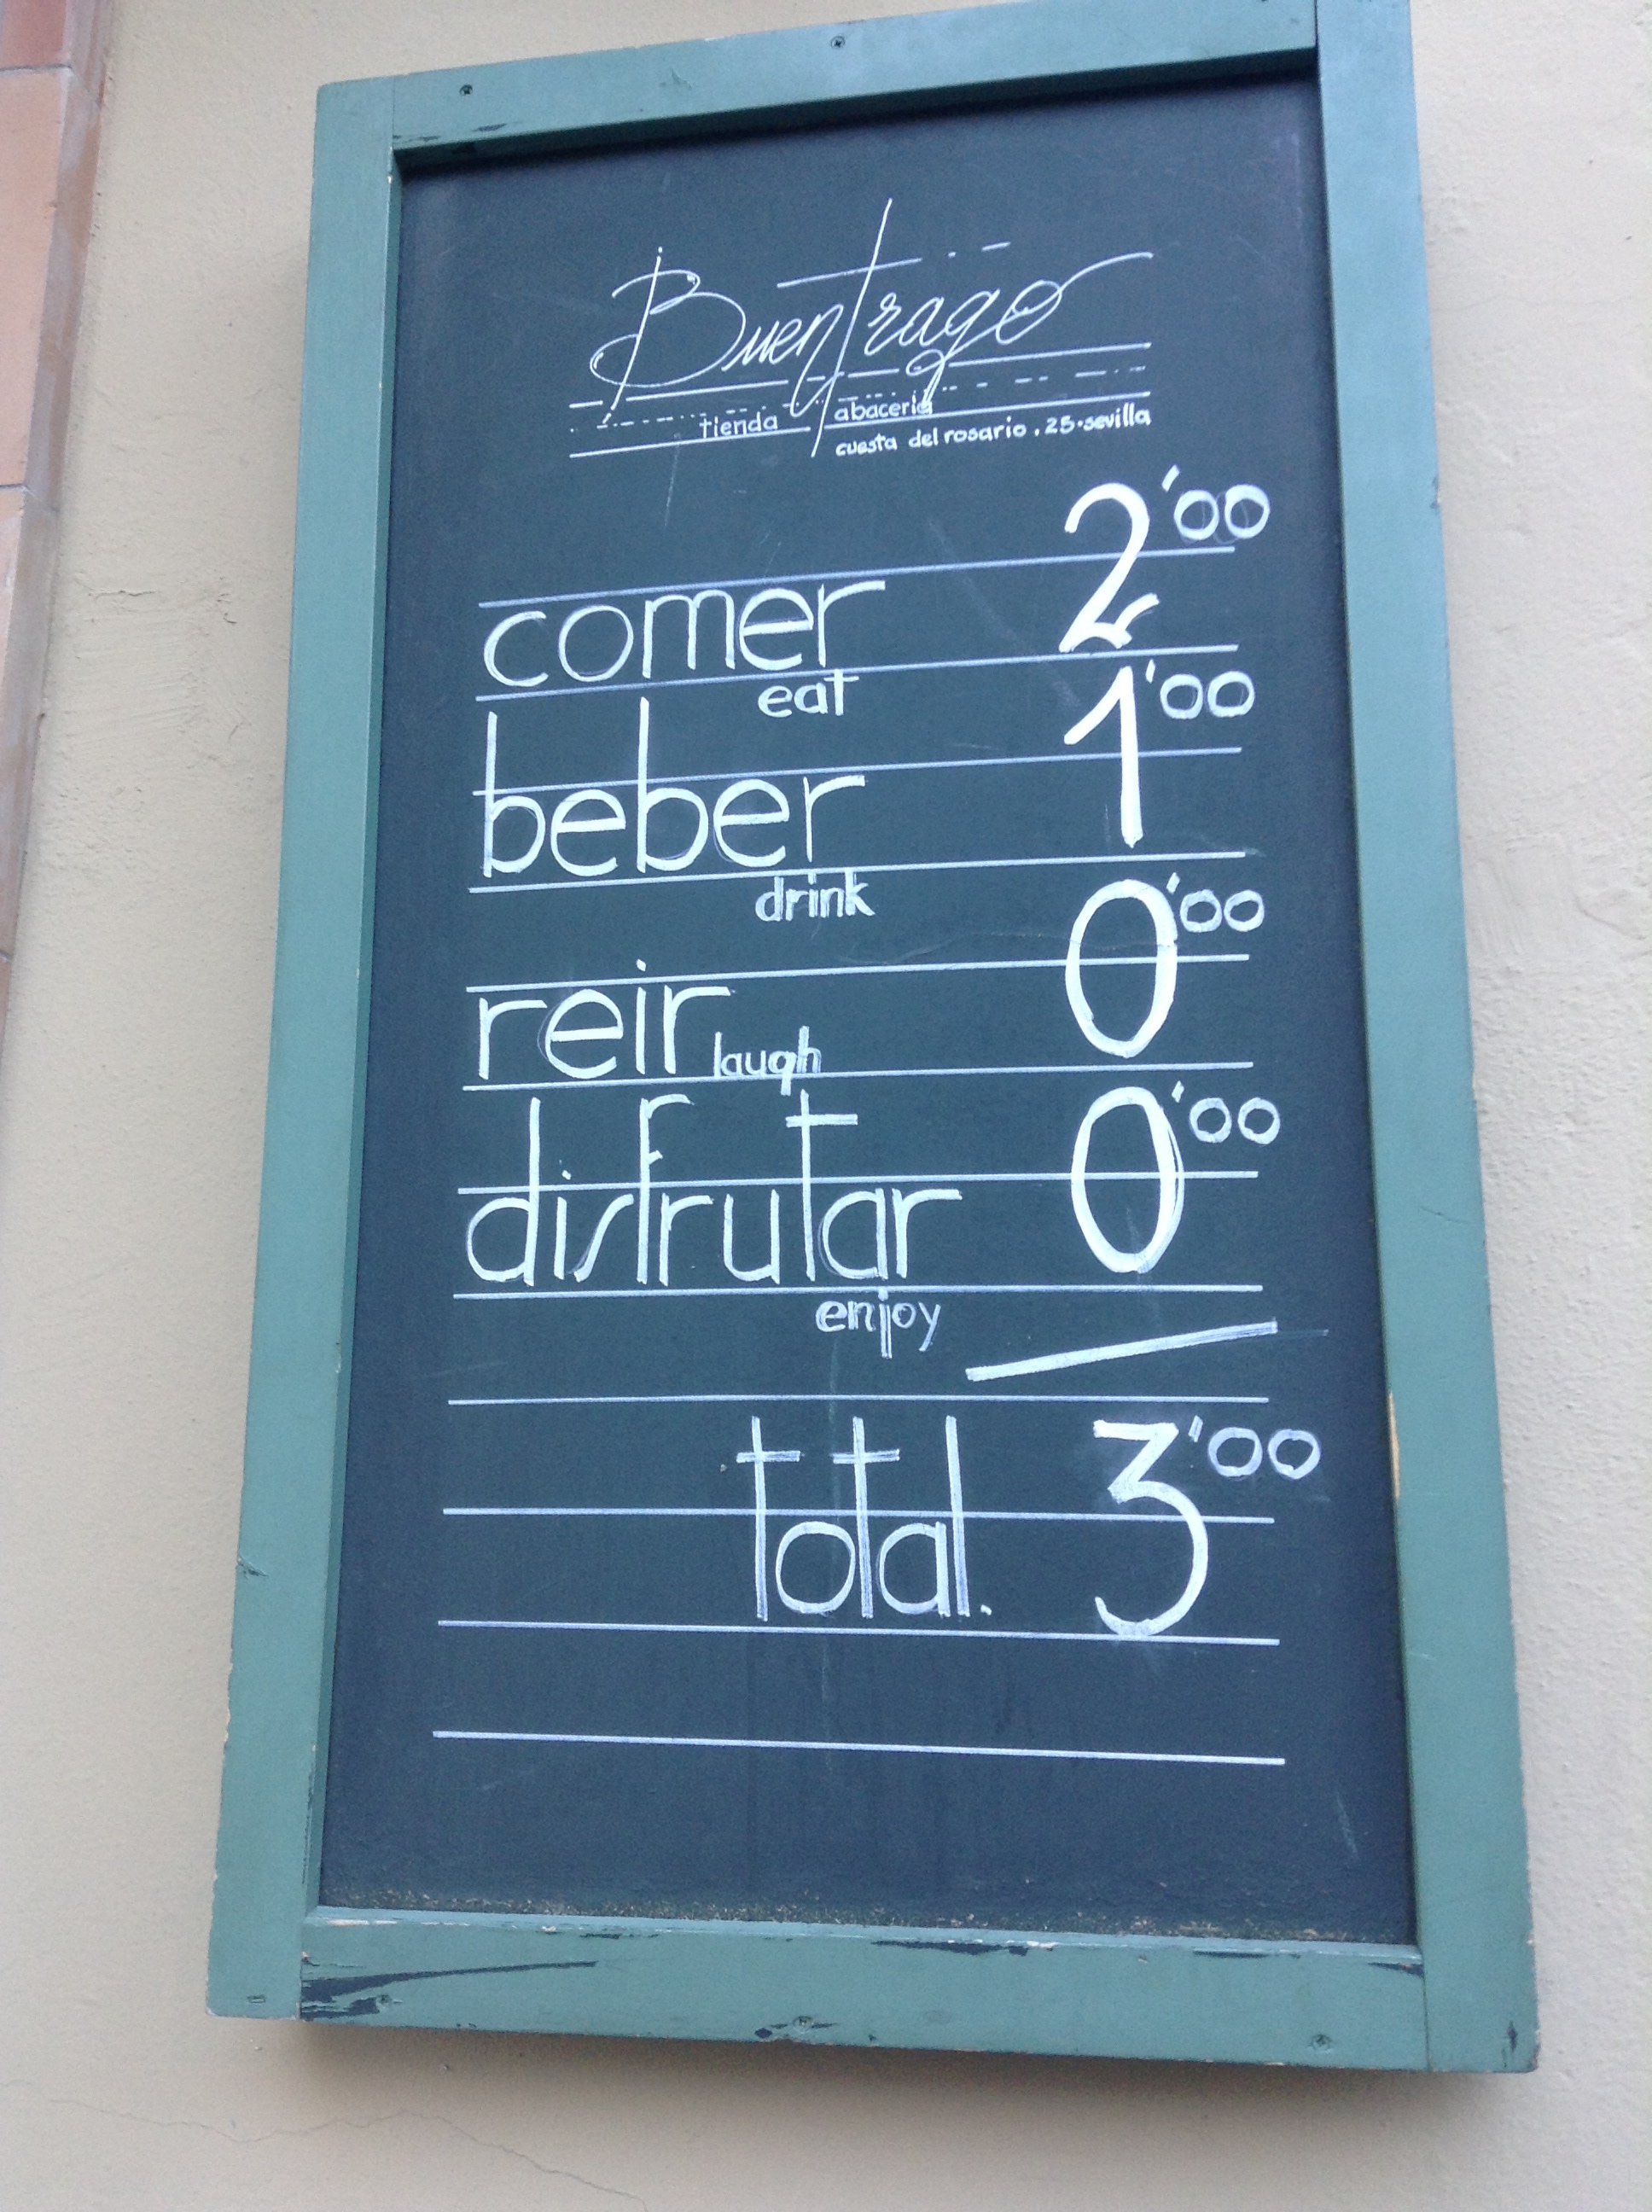 Buen Trago
tienda abacería
cuesta del rosario . 25 · sevilla
comer 2'00
eat
beber 1'00
drink
reir laugh 0'00
disfrutar 0'00
enjoy
total. 3'00